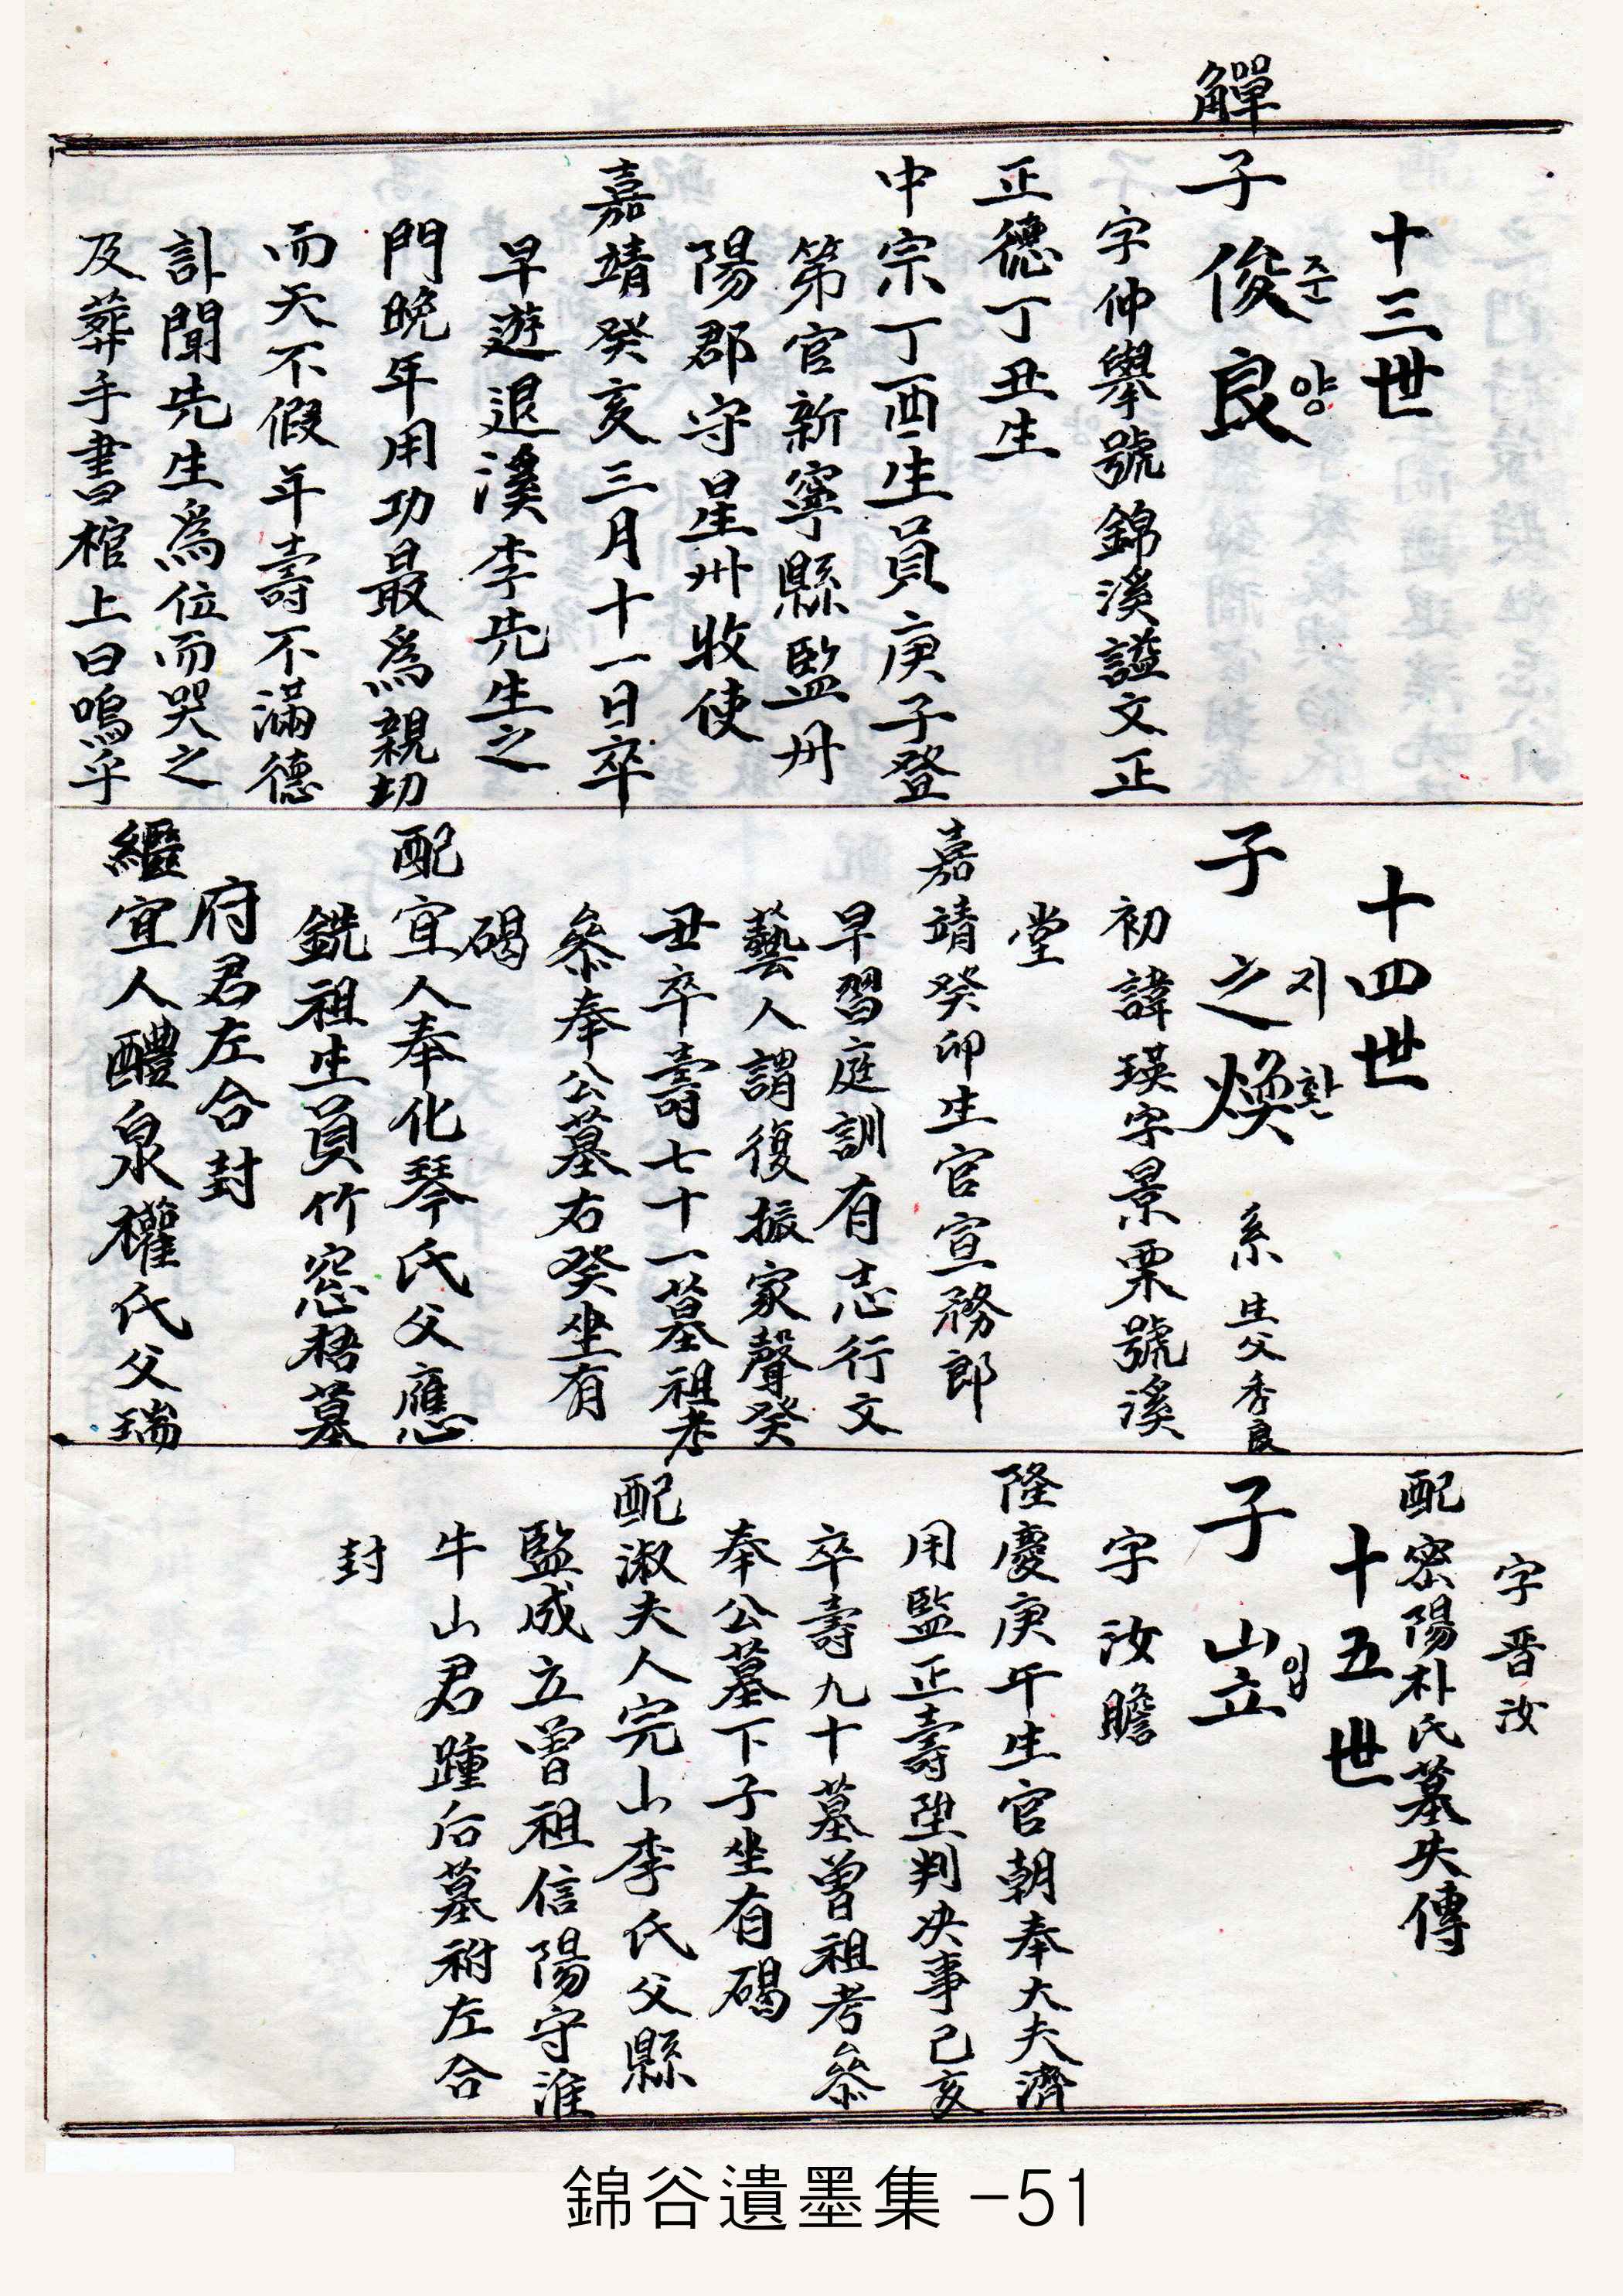 觶
十三世
子 俊良
준 양
字仲擧號錦溪諡文正
正德丁丑生
中宗丁酉生員庚子登
第官新寧縣監丹
陽郡守星州收使
嘉靖癸亥三月十一日卒
早遊退溪李先生之
門晩年用功最爲親切
而天不假年壽不滿德
訃聞先生爲位而哭之
及葬手書棺上曰嗚乎
十四世
子 之煥 系 生父秀良
지 환
初諱瑛字景栗號溪
堂
嘉靖癸卯生官宣務郎
早習庭訓有志行文
藝人謂復振家聲癸
丑卒壽七十一墓祖考
參奉公墓右癸坐有
碣
配宜人奉化琴氏父應
銑祖生員竹窓梧墓
府君左合封
繼宜人醴泉權氏父瑞
字晋汝
配密陽朴氏墓失傳
十五世
子 岦
입
字汝瞻
隆慶庚午生官朝奉大夫濟
用監正壽陞判决事己亥
卒壽九十墓曾祖考參
奉公墓下子坐有碣
配淑夫人完山李氏父縣
監成立曾祖信陽守淮
牛山君踵后墓祔左合
封
錦谷遺墨集 -51